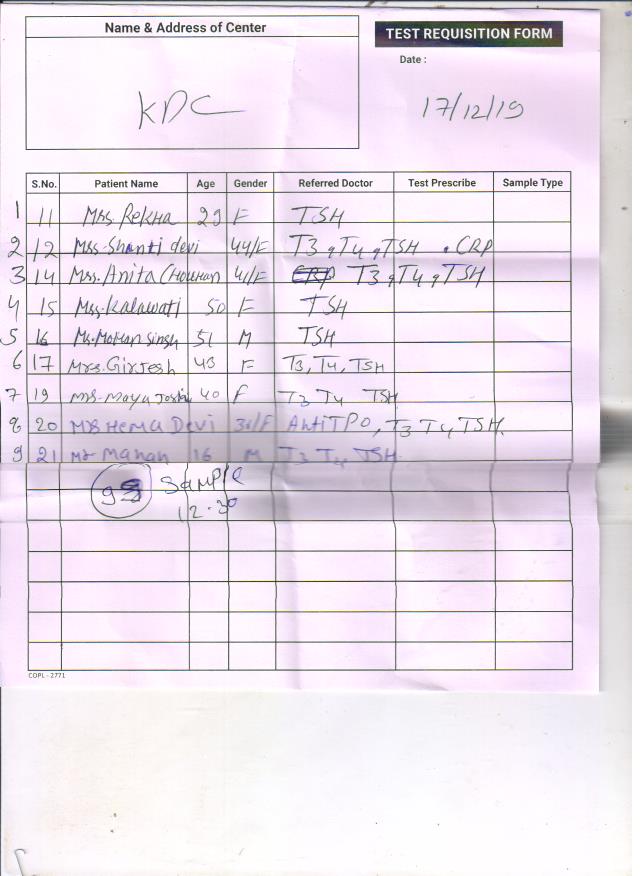 Name & Address of Center
TEST REQUISITION FORM
Date :
KDC
17/12/19
S.No. Patient Name Age Gender Referred Doctor Test Prescribe Sample Type
1 11 Mrs. Rekha 29 F TSH
2 12 Mrs. Shanti devi 44/F T3, T4, TSH, CRP
3 14 Mrs. Anita Chouhan 41/F T3, T4, TSH
4 15 Mrs. Kalawati 50 F TSH
5 16 Mr. Mohan Singh 51 M TSH
6 17 Mrs. Girjesh 43 F T3, T4, TSH
7 19 Mrs. Maya Joshi 40 F T3 T4 TSH
8 20 Mrs Hema Devi F Anti TPO, T3 T4 TSH.
9 21 Mr Manan 16 M T3 T4 TSH
9 Sample
12.30
COPL - 2771